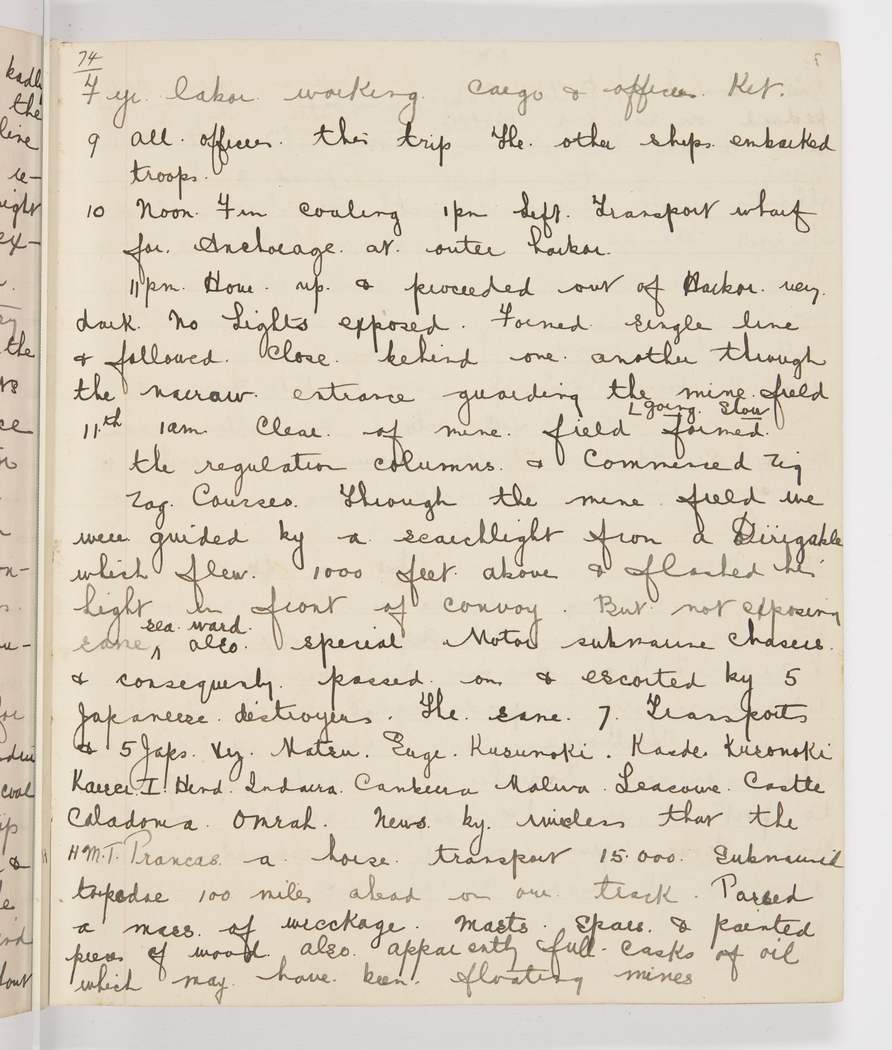 74
4 gy. labor. working. cargo & officers. Kit.
9 all. officers. this trip The. other ships. embarked
troops.
10 Noon. Fin coaling 1pm left. Transport wharf
for. Anchorage. at. outer harbor.
11pm. Hove. up. & proceeded out of Harbor. very.
dark. No Lights exposed. Formed. single line
& followed. Close. behind one. another through
the narrow. entrance guarding the mine. field
going. slow
11th 1am. Clear. of mine. field formed.
the regulation columns. & Commenced Zig
Zag. Courses. Through the mine field we
were guided by a searchlight from a Dirigable
which flew. 1000 feet. above & flashed his
light in front of convoy. But not exposing
sea. ward.
same, also. special Motor submarine Chasers.
& consequently. passed. on & escorted by 5
Japaneese. destroyers. The. same. 7. Transports
& 5 Japs. Viz. Matsu. Suge. Kusunoki. Kaede. Kuronoki
I. Hind. Indarra. Canberra Malwa. Leasowe. Castle
Caladonia. Omrah. News. by. wireless that the
H.M.T. Pancras. a. horse. transport 15.000. Submarined
torpedoe 100 miles ahead on our track. Passed
a mass. of wreckage. Masts. Spars. & painted
pieces of wood. also. apparently full. casks of oil
which may. have. been. floating mines